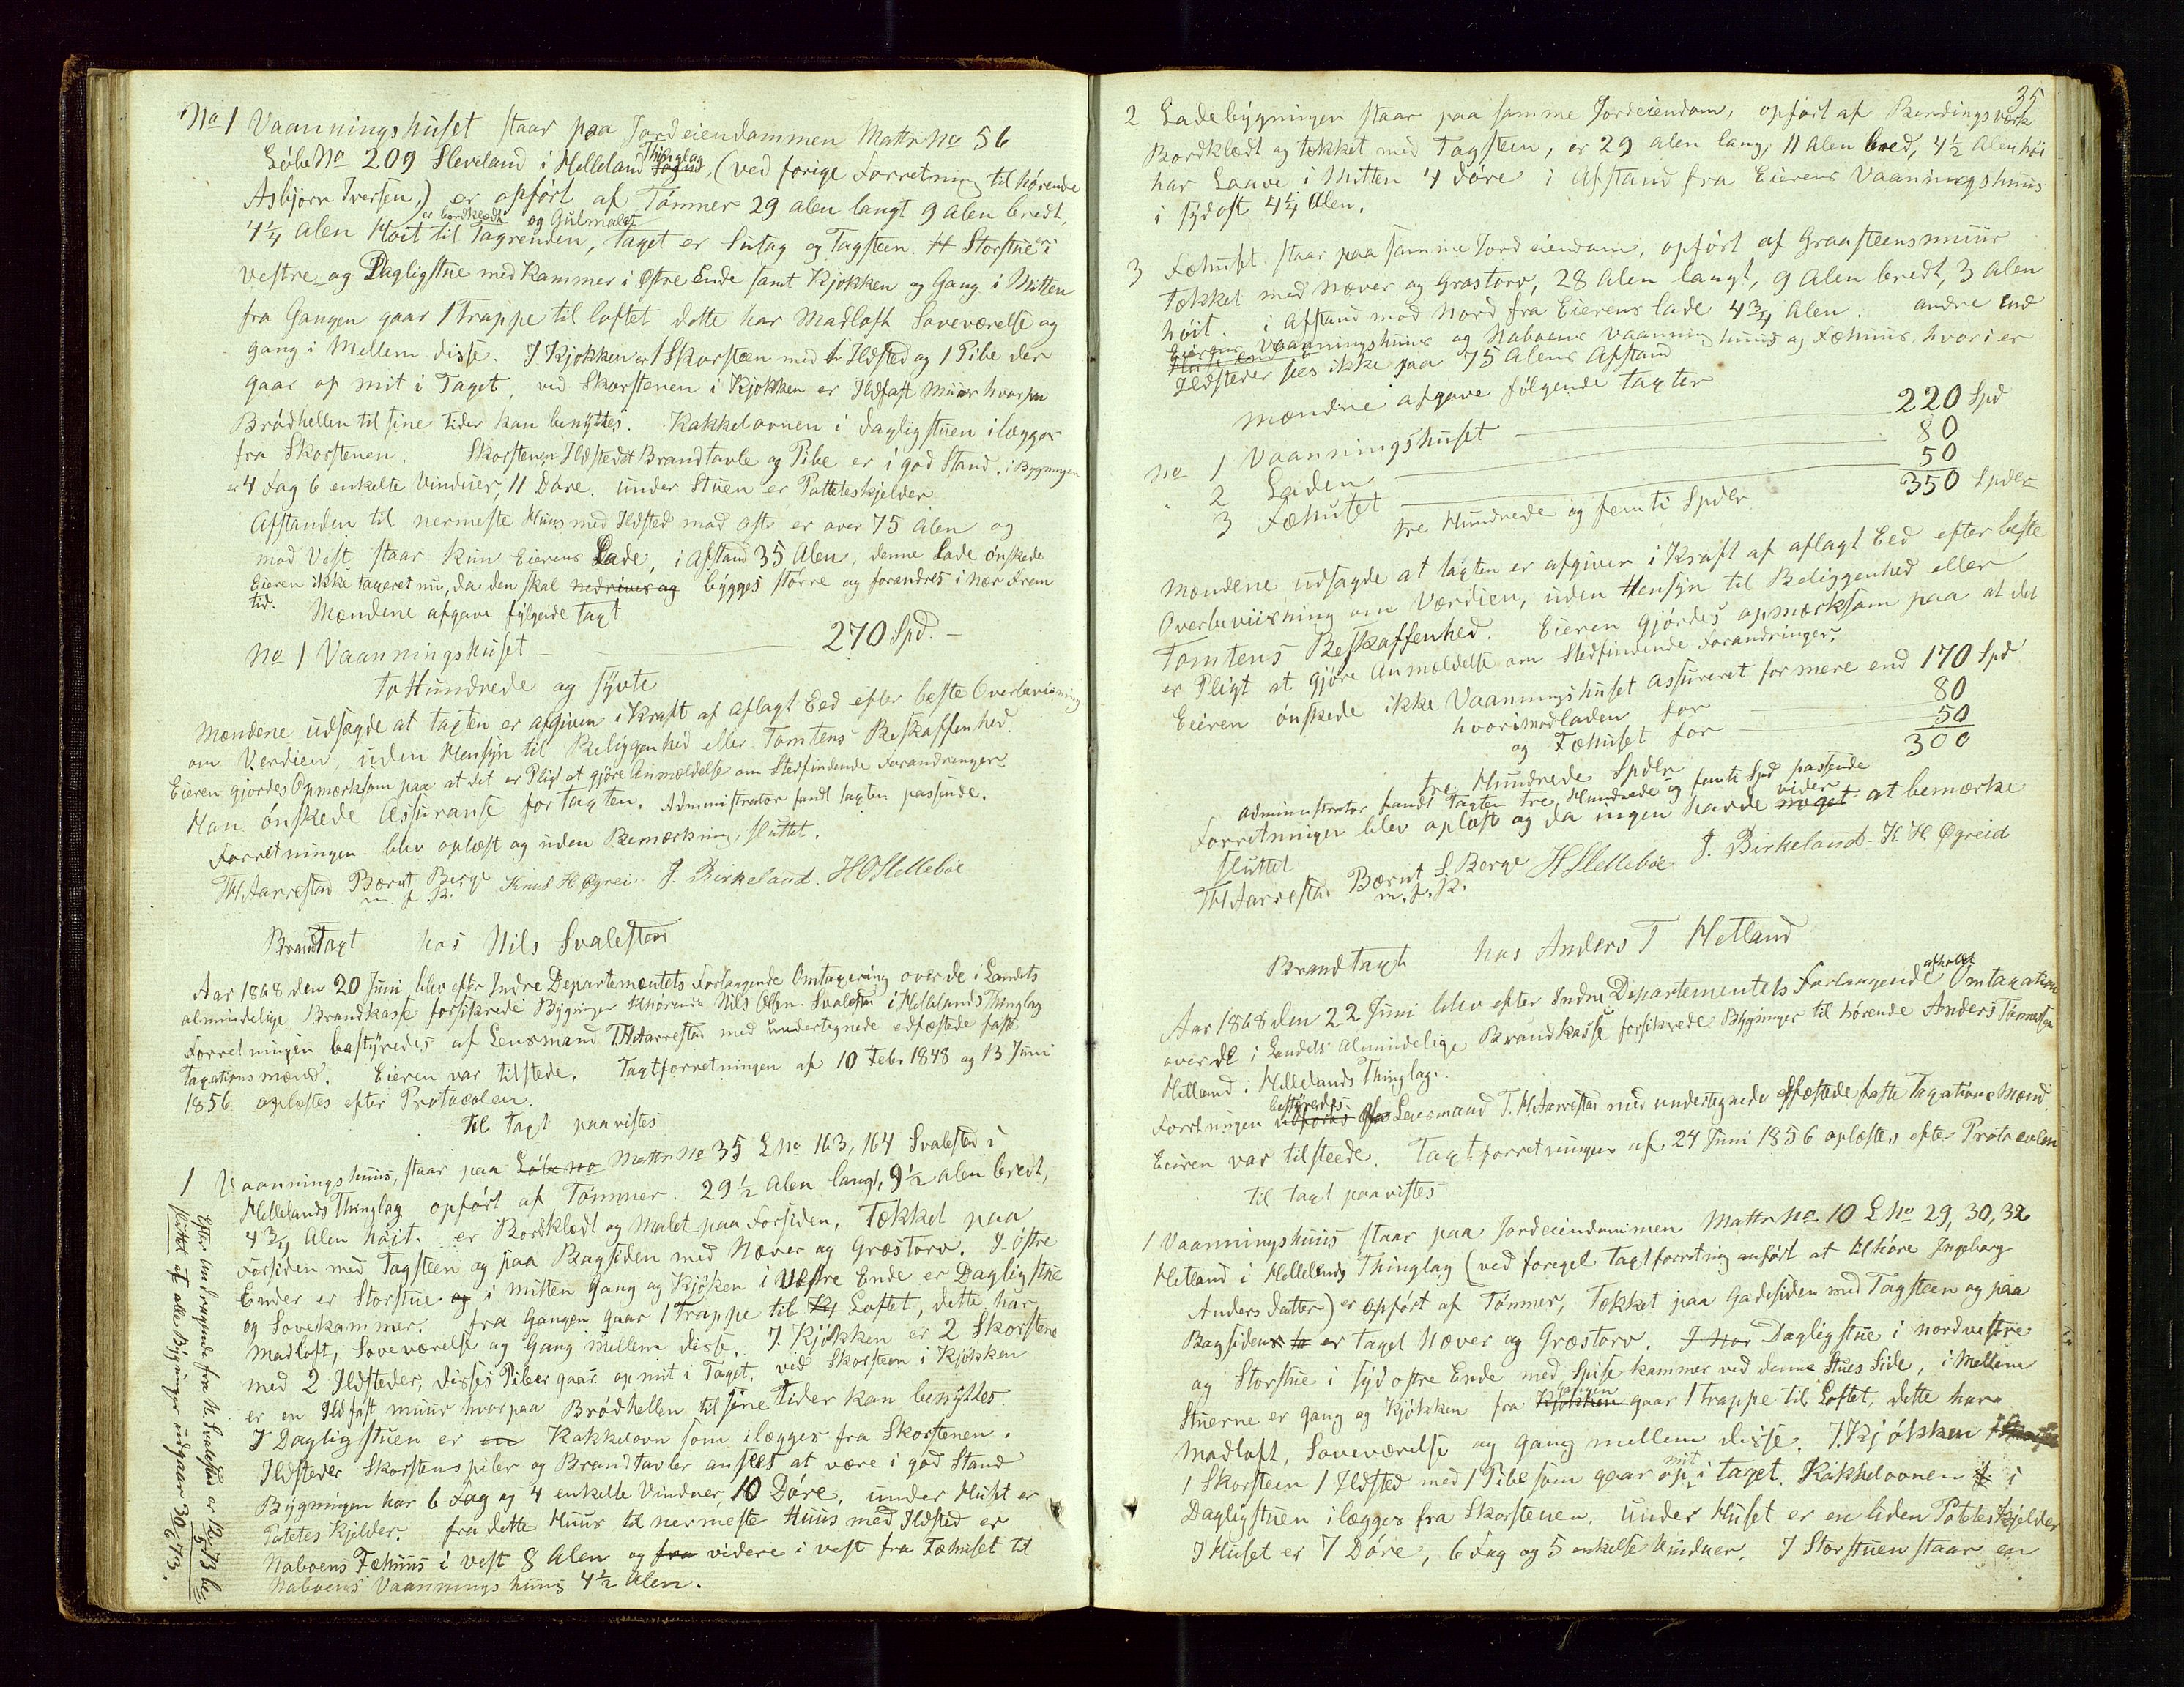 No 1 Vaaningshuset staar paa Jordeiendammen Mattr No 56
Løbe No 209 Sleveland i Helleland Thinglag, (ved forige Forretning til hørende
Asbjørn Iversen,) er opført af Tømmer 29 alen langt 9 Alen bredt,
er bordklædt og Gulmalet
4 1/4 Alen Høit til Tagrenden, taget er Sutag og Tagsteen. Storstue i
vestre og Dagligstue med Kammer i Østre Ende samt Kjøkken og Gang i Mitten
fra Gangen gaar 1 Trappe til loftet dette har Madloft Soveværelse og
gang i Mellem disse. I Kjøkken er 1 Skorsteen med Ildsted og 1 Pibe der
gaar op mit i Taget, ved Skorstenen i Kjøkken er Ildfast Muur hvorpaa
Brødhellen til sine tider kan benyttes. Kakkelovnen i dagligstuen ilægges
fra Skorstenen. Skorstenen Ildstedet Brandtavle og Pibe er i god Stand. i Bygningen
er 4 Fag 6 enkelte Vinduer, 11 Døre. under Stuen er Potteteskjelder
Afstanden til nermeste Huus med Ildsted mod øst er over 75 Alen og
mod Vest staar kun Eierens Lade, i Afstand 35 Alen, denne Lade ønskede
Eieren ikke taxeret nu, da den skal nedrives og bygges større og forandres i nær Frem
tid. Mændene afgave følgende taxt
No 1 Vaaningshuset — 270 Spd. —
to Hundrede og sytti
Mændene udsagde at taxten er afgiven i kraft af aflagt Eed efter beste Overbevisning
om Verdien, uden Hensyn til Beliggenhed eller Tomtens Beskaffenhed.
Eieren gjordes Opmerksom paa at det er Pligt at gjøre Anmældelse om Stedfindende Forandringer.
Han ønskede Assuranse for taxten. Administrator fandt taxten passende.
Forretningen blev oplæst og uden Bemærkning, sluttet.
TH Aarrestad Bærnt Berge Knud H Øgreid J. Birkeland. HO Slettebøe
m. f. P.
Brandtaxt hos Nils Svalestad
Aar 1868 den 20 Juni blev efter Indre Departementets Forlangende Omtaxering over de i Landets
almindelige Brandkasse forsikrede Bygninger tilhørende Nils Olsen Svalestad i Hellelands Thinglag
Forretningen bestyredes af Lensmand TH Aarrestad med undertegnede edfæstede faste
Taxationsmænd. Eieren var tilstede. Taxtforretningen af 10 Febr 1848 og 13 Juni
1856 oplæstes efter Protocolen.
til taxt paavistes
1 Vaaningshuus, staar paa Løbe No Mattr No 35 L No 163, 164 Svalestad i
Hellelands Thinglag opført af Tømmer. 29 1/2 Alen langt, 9 1/2 alen bredt,
4 3/4 Alen høit. er Bordklædt og Malet paa Forsiden, Tækket paa
Forsiden med Tagsteen og paa Bagsiden med Næver og Græstorv. I østre
Ender er Storstue og i mitten gang og Kjøken i Vestre Ende er Dagligstue
og Sovekammer. fra Gangen gaar 1 Trappe til Kj Loftet, dette har
Madloft, Soveværelse og Gang mellem disse. I Kjøkken er 2 Skorstene
med 2 Ildsteder, disses Piber gaar op mit i Taget, ved Skorsteen i Kjøkken
er en Ildfast muur hvorpaa Brødhellen til sine tider kan benyttes.
I Dagligstuen er en Kakkelovn som ilægges fra Skorstenen.
Ildsteder Skorstenspiber og Brandtavler ansees at være i god Stand
Bygningen har 6 Fag og 4 enkelte Vinduer, 10 Døre, under Huset er
Potetes Kjelder. fra dette Huus til nermeste Huus med Ildsted er
Naboens Fæhuus i vest 8 Alen og fra videre i vest fra Fæhuset til
Naboens Vaanningshuus 4 1/2 Alen.
Efter andragende fra N. Svalestad er
slettet af alle Bygninger udgaar 30/6 73.
35
2 Ladebygningen staar paa samme Jordeiendom, opført af Bindingsværk
Bordklædt og tækket med Tagsteen, er 29 alen lang, 11 Alen bred, 4 1/2 Alen høi
har Laave i Mitten 4 døre i Afstand fra Eierens Vaaningshuus
i sydost 4 1/4 Alen.
3 Fæhuset staar paa samme Jordeiendom, opført af Graasteensmuur
tækket med Næver og Græstorv, 28 Alen langt, 9 Alen bredt, 3 Alen
høit. i Afstand mod Nord fra Eierens lade 4 3/4 Alen. andre end
Eierens Vaaningshuus og Naboens Vaanning huus og Fæhuus hvori er
Ildsteder sees ikke paa 75 Alens Afstand
Mændene afgave følgende taxter
No 1 Vaaningshuset — 220 Spd
2 Laden — 80
3 Fæhuset — 50
tre Hundrede og femti Spdlr 350 Spdlr
Mændene udsagde at taxten er afgiven i Kraft af aflagt Eed efter beste
Overbeviisning om Værdien, uden Hensyn til Beliggenhed eller
Tomtens Beskaffenhed. Eieren gjørdes opmærksom paa at det
er Pligt at gjøre Anmældelse om Stedfindende Forandringer.
Eieren ønskede ikke Vaaningshuset assureret for mere end 170 Spd
hvorimod laden for — 80
og Fæhuset for — 50
tre Hundrede Spdlr 300
Administrator fandt taxten tre Hundrede og femti Spd passende
Forretningen blev oplæst og da ingen havde noget vider at bemærke
sluttet
TH Aarrestad Bærnt S. Berge H Slettebøe J. Birkeland. K H Øgreid
m. f. P.
Brandtaxt hos Anders T Hetland
Aar 1868 den 22 Juni blev efter Indre Departementets Forlangende afholdt Omtaxation
over de i Landets Almindelige Brandkasse forsikrede Bygninger til hørende Anders Tønnesen
Hetland i Hellelands Thinglag.
Forretningen bestyredes Lensmand T. H Aarrestad med undertegnede edfæstede faste Taxations Mænd.
Eieren var tilsteede. Taxtforretningen af 24 Juni 1856 oplæstes efter Protocolen
til taxt paavistes
1 Vaaningshuus staar paa Jordeiendommen Mattr No 10 L No 29, 30, 32
Hetland i Hellelands Thinglag (ved foregel taxtforretning anført at tilhøre Ingeborg
Anders datter) er opført af Tømmer, Tækket paa Gadesiden med Tagsteen og paa
Bagsiden er taget Næver og Græstorv. I Nor Dagligstue i nordvestre
og Storstue i sydostre Ende med Spisekammer ved denne Stues Side, i Mellem
Stuerne er gang og Kjøkken fra Kjøkken gangen gaar 1 trappe til Loftet, dette har
Madloft, Soveværelse og gang mellem disse. I Kjøkken
1 Skorsteen 1 Ildsted med 1 Pibe som gaar op mit i taget. Kakkelovnen i
Dagligstuen ilægges fra Skorstenen. under Huset er en liden Potetes Kjelder
I Huset er 7 Døre, 6 Fag og 5 enkelte Vinduer. I Storstuen staar en